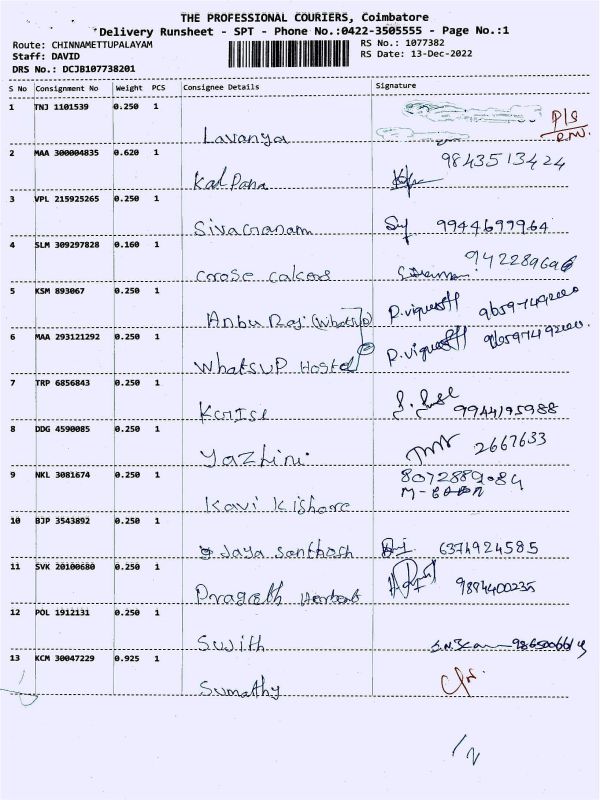 THE PROFESSIONAL COURIERS, Coimbatore
Delivery Runsheet - SPT - Phone No.:0422-3505555 - Page No.:1
Route: CHINNAMETTUPALAYAM
RS No.: 1077382
Staff: DAVID
RS Date: 13-Dec-2022
DRS No.: DCJB107738201
S No Consignment No Weight PCS Consignee Details Signature
1 TNJ 1101539 0.250 1
P/S
Lavanya
2 MAA 300004835 0.620 1 9843513424
Kalpana
3 VPL 215925265 0.250 1
Sivagnanam 9944699964
4 SLM 309297828 0.160 1
5 KSM 893067 0.250 1
Anbu Raj (Whatsup)
6 MAA 293121292 0.250 1
WhatsUP Hostel
7 TRP 6856843 0.250 1
9944195988
8 DDG 4590085 0.250 1 2667633
Yazhini
9 NKL 3081674 0.250 1
Kavi Kishore
10 BJP 3543892 0.250 1
Jaya Santhosh 6374924585
11 SVK 20100680 0.250 1
9894400235
12 POL 1912131 0.250 1
Sujith
13 KCM 30047229 0.925 1
Sumathy